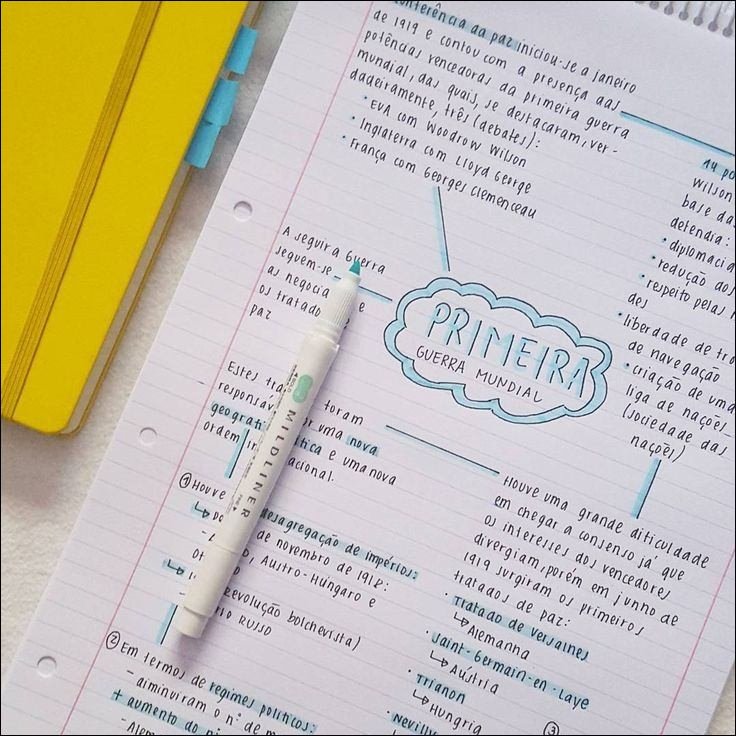 conferência da paz iniciou-se a janeiro
de 1919 e contou com a presença das
potências vencedoras da primeira guerra
mundial, das quais, se destacaram, ver-
dadeiramente, três (debates):
• EUA com Woodrow Wilson
• Inglaterra com Lloyd George
• França com Georges Clemenceau
14 po
Wilson
base da
defendia:
• diplomacia
• redução dos
• respeito pelas n
des
• liberdade de tro
de navegação
• criação de uma
liga de nações
(sociedade das
nações)
A seguir à Guerra
seguem-se
as negocia
os tratado
paz
PRIMEIRA
GUERRA MUNDIAL
Estes tra foram
responsáv or uma nova
geografi ítica e uma nova
ordem in nacional.
① Houve desagregação de impérios:
↳ de novembro de 1918:
o, Austro-Húngaro e
↳ revolução bolchevista)
Russo
② Em termos de regimes políticos:
- diminuíram o nº de m
+ aumento do nº
- Alem
Houve uma grande dificuldade
em chegar a consenso já que
os interesses dos vencedores
divergiam, porém em junho de
1919 surgiram os primeiros
tratados de paz:
• Tratado de Versalhes
↳ Alemanha
• Saint-Germain-en-Laye
↳ Áustria
• Trianon
↳ Hungria
• Neuilly
③
MILDLINER